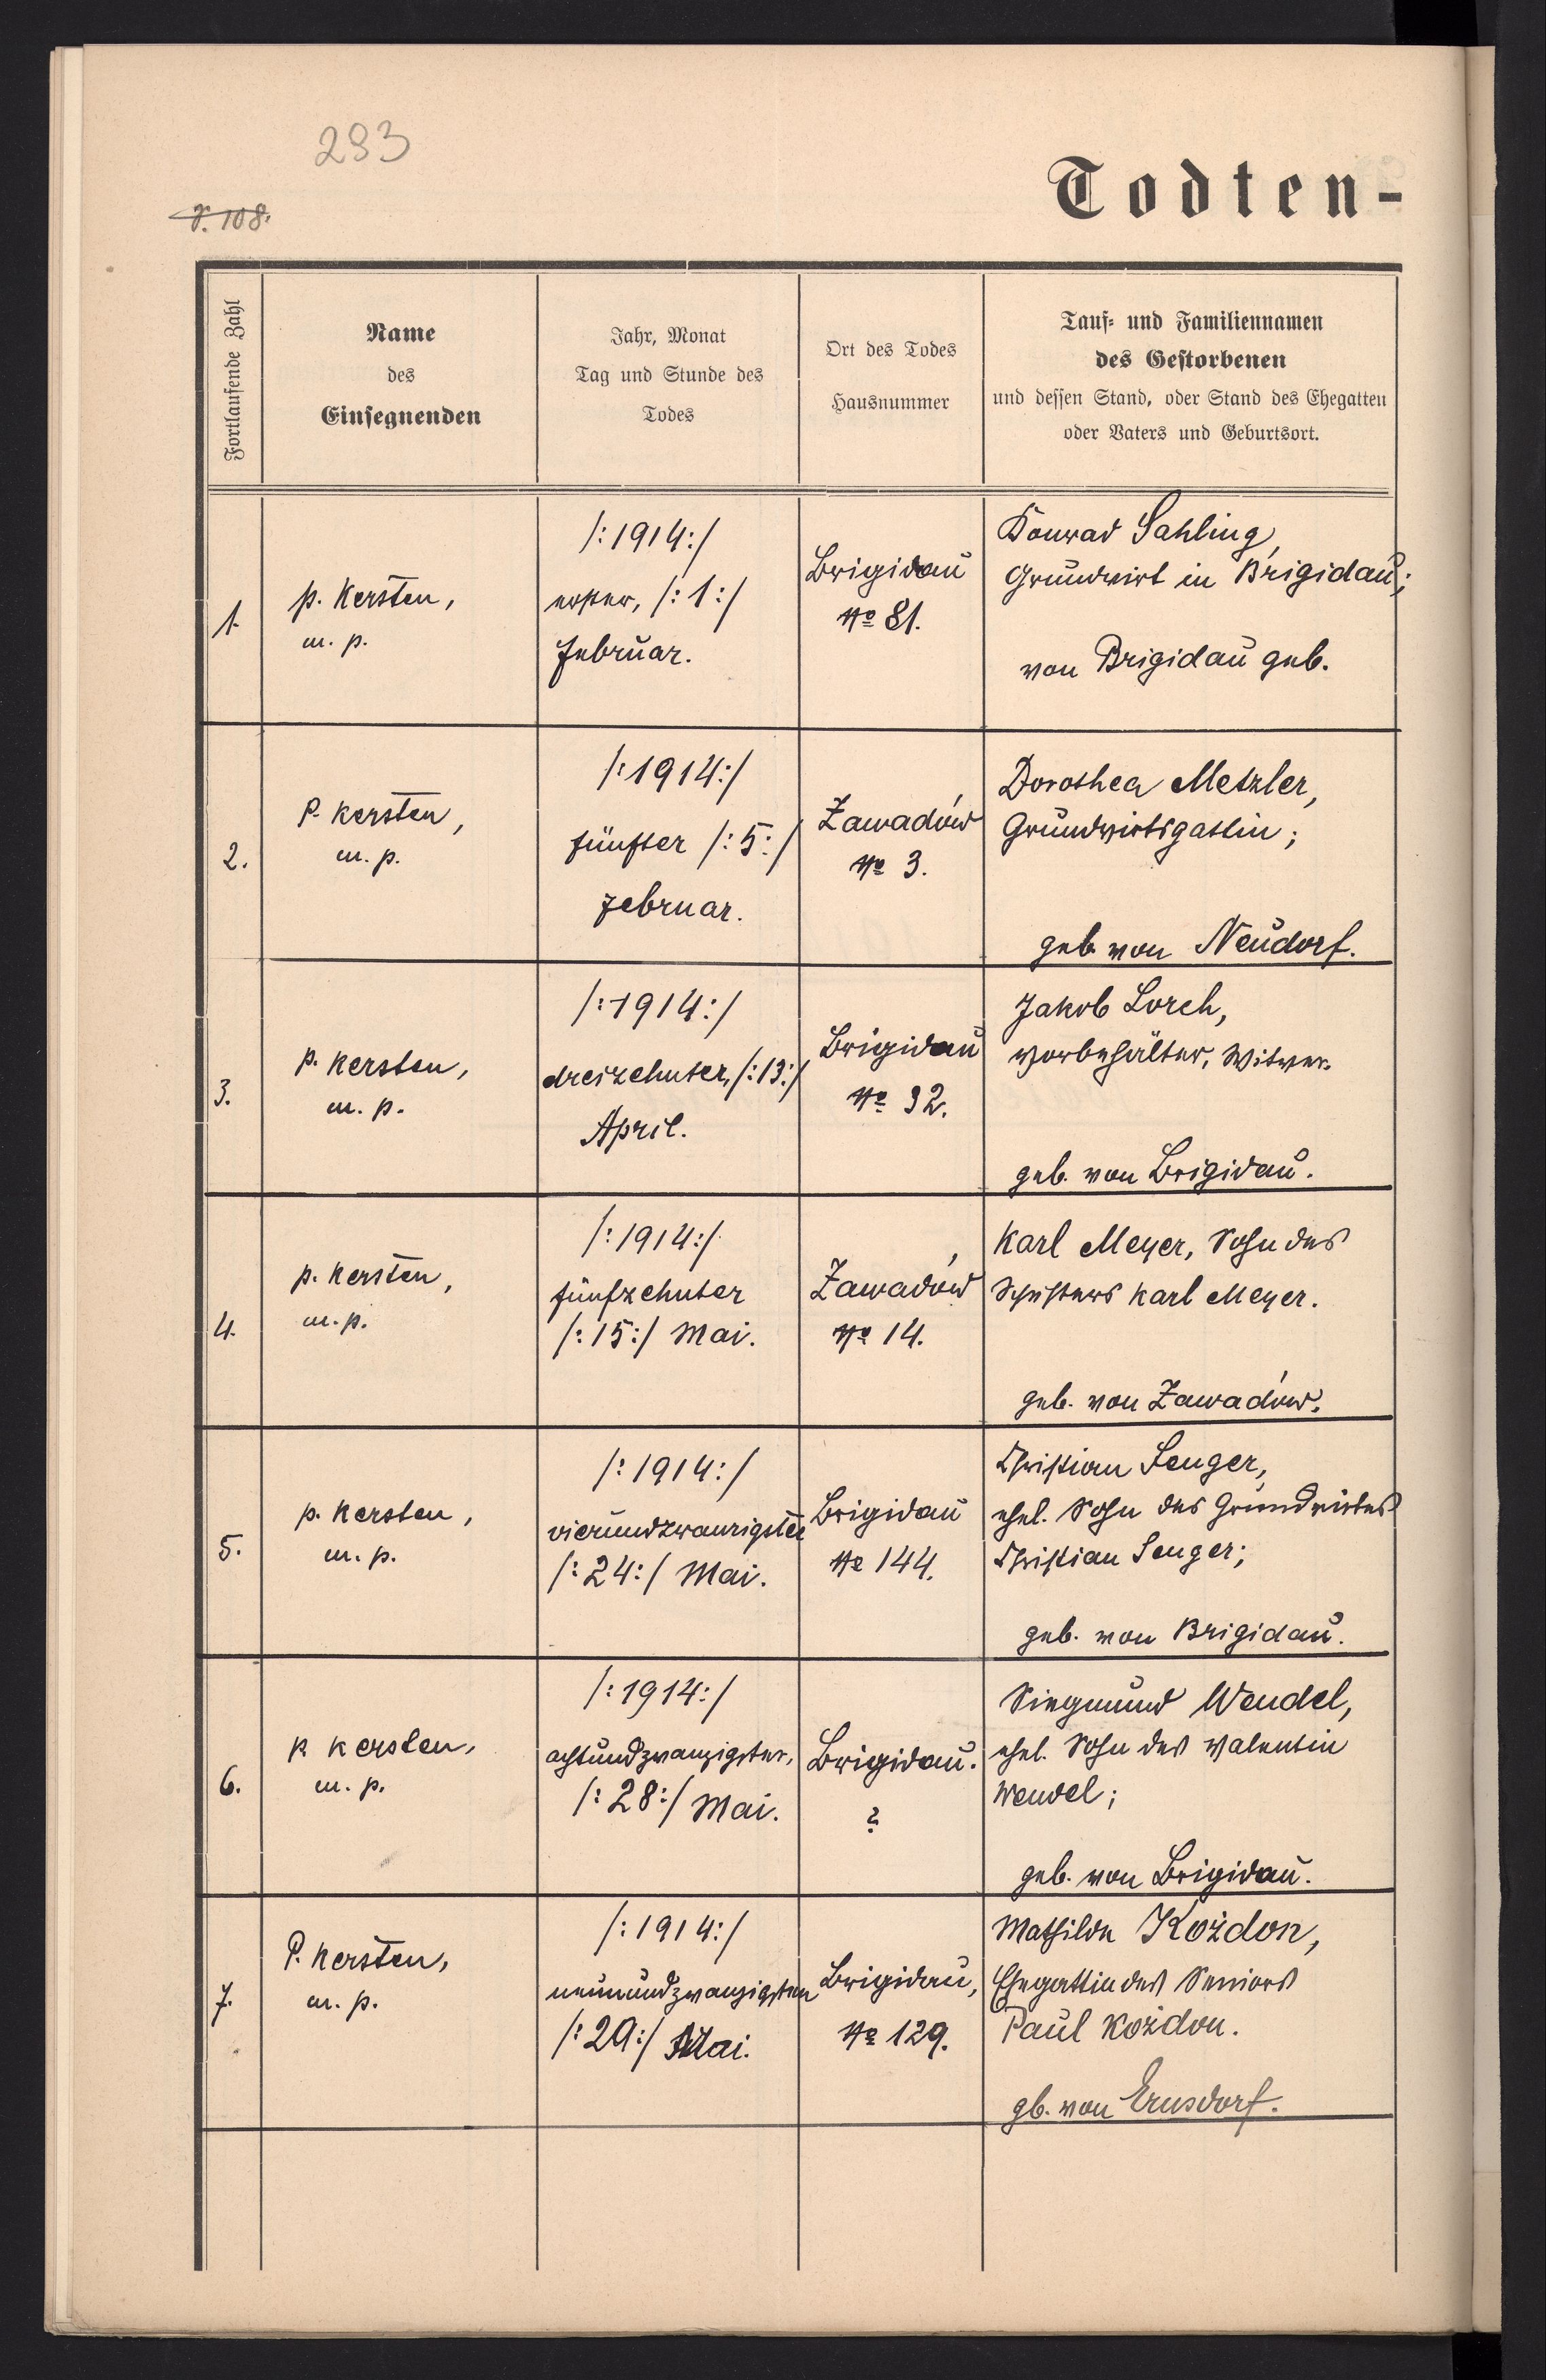 293
S. 108.
Todten-
Fortlaufende Zahl
Name
des
Einsegnenden
Jahr, Monat
Tag und Stunde des
Todes
Ort des Todes
Hausnummer
Tauf- und Familiennamen
des Gestorbenen
und dessen Stand, oder Stand des Ehegatten
oder Vaters und Geburtsort.
1.
p. Kersten,
m. p.
/:1914:/
erster, /:1:/
Februar.
Brigidau
No 81.
Konrad Sahling,
Grundwirt in Brigidau;
von Brigidau geb.
2.
P. Kersten,
m. p.
/:1914:/
fünfter /:5:/
Februar.
Zawadów
No 3.
Dorothea Metzler,
Grundwirtsgattin;
geb. von Neudorf.
3.
p. Kersten,
m. p.
/:1914:/
dreizehnter, /:13:/
April.
Brigidau
No 32.
Jakob Lorch,
Vorbehälter, Witwer.
geb. von Brigidau.
4.
p. Kersten,
m. p.
/:1914:/
fünfzehnter
/:15:/ Mai.
Zawadów
No 14.
Karl Meyer, Sohn des
Schusters Karl Meyer.
geb. von Zawadów.
5.
p. Kersten,
m. p.
/:1914:/
vierundzwanzigster
/:24:/ Mai.
Brigidau
No 144.
Christian Senger,
ehel. Sohn des Grundwirtes
Christian Senger;
geb. von Brigidau.
6.
p. Kersten,
m. p.
/:1914:/
achtundzwanzigster,
/:28:/ Mai.
Brigidau.
?
Siegmund Wendel,
ehel. Sohn des Valentin
Wendel;
geb. von Brigidau.
7.
P. Kersten,
m. p.
/:1914:/
neunundzwanzigsten
/:29:/ Mai.
Brigidau,
No 129.
Mathilde Kożdon,
Ehegattin des Seniors
Paul Kożdon.
gb. von Ernsdorf.